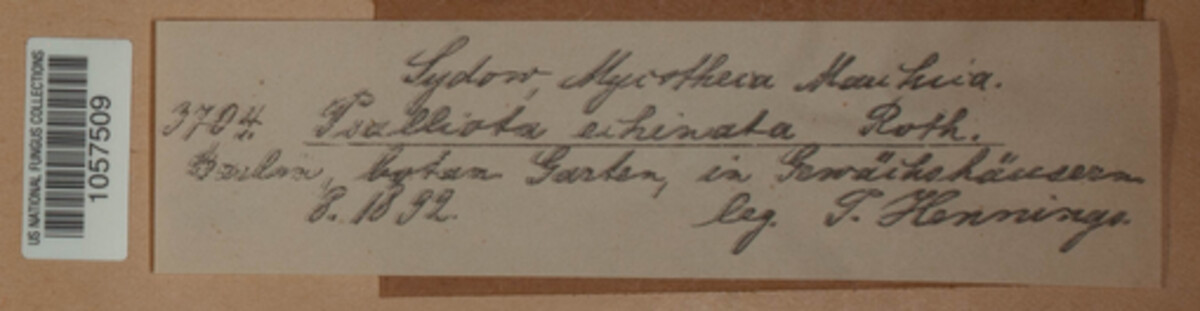 US NATIONAL FUNGUS COLLECTIONS
01057509
Sydow, Mycotheca Marchica.
3704. Psalliota echinata Roth.
Berlin, botan Garten, in Gewächshäusern
8. 1892. leg. P. Hennings.